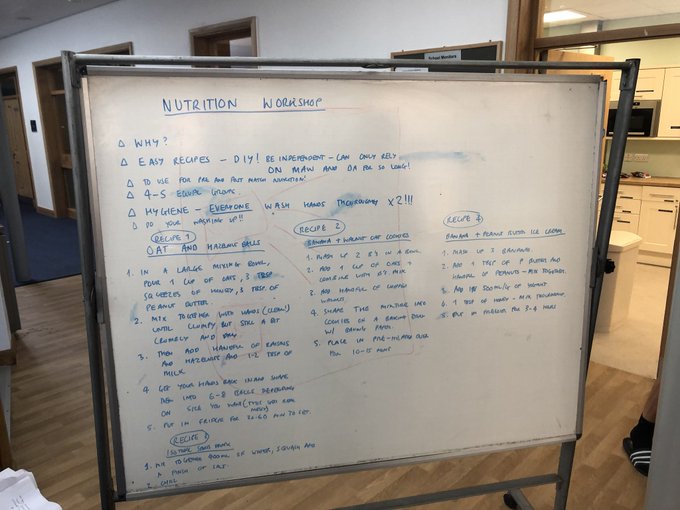 School Monitors
NUTRITION WORKSHOP
Δ WHY?
Δ EASY RECIPES - DIY! BE INDEPENDENT - CAN ONLY RELY
ON MAW AND DA FOR SO LONG!
Δ TO USE FOR PRE AND POST MATCH NUTRITION!
Δ 4-5 EQUAL GROUPS.
Δ HYGIENE - EVERYONE WASH HANDS THOROUGHLY X2!!!
Δ DO YOUR WASHING UP!!
RECIPE 1
OAT AND HAZELNUT BALLS
1. IN A LARGE MIXING BOWL,
POUR 1 CUP OF OATS, 3 TBSP
SQUEEZES OF HONEY, 3 TBSP OF
PEANUT BUTTER.
2. MIX TOGETHER WITH HANDS (CLEAN!)
UNTIL CLUMPY BUT STILL A BIT
CRUMBLY AND DRY.
3. THEN ADD HANDFUL OF RAISINS
AND HAZELNUTS AND 1-2 TBSP OF
MILK.
4 GET YOUR HANDS BACK IN AND SHAPE
INTO 6-8 BALLS DEPENDING
ON SIZE YOU WANT (
MESSY)
5. PUT IN FRIDGE FOR 30-60 MIN TO SET.
RECIPE
ISOTONIC SPORTS DRINK
1. MIX TOGETHER 400ML OF WATER, SQUASH AND
A PINCH OF SALT.
2. CHILL
RECIPE 2
BANANA + WALNUT OAT COOKIES
1. MASH UP 2 B'S IN A BOWL
2. ADD 1 CUP OF OATS +
COMBINE WITH B'S MIX
3. ADD HANDFUL OF CHOPPED
WALNUTS.
4. SHAPE THE MIXTURE INTO
COOKIES ON A BAKING TRAY
W/ BAKING PAPER.
5. PLACE IN PRE-HEATED OVEN
FOR 10-15 MINS
RECIPE
BANANA + PEANUT BUTTER ICE CREAM
1. MASH UP 3 BANANAS.
2. ADD 1 TBSP OF P BUTTER AND
HANDFUL OF PEANUTS - MIX TOGETHER.
3. ADD 500ML/G OF YOGURT.
4. 1 TBSP OF HONEY - MIX THOROUGHLY.
5. PUT IN FREEZER FOR 3-4 HOURS